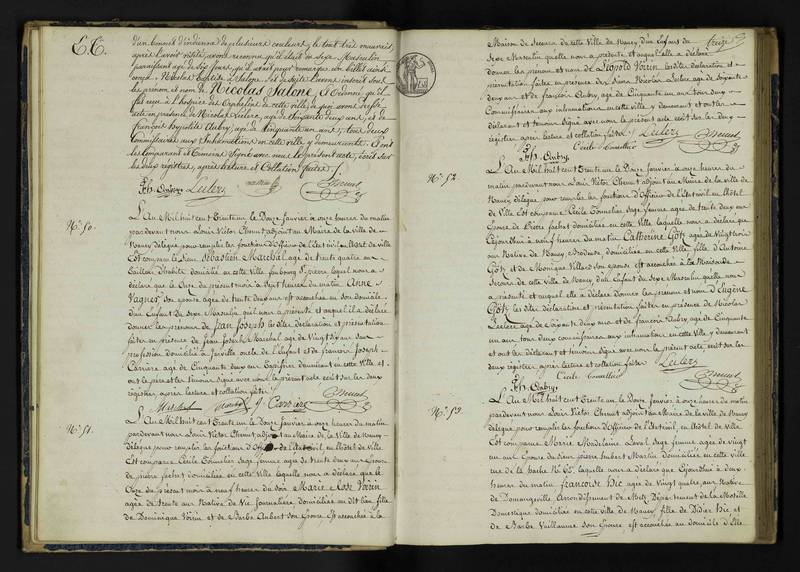 E.C.
d'un bonnet d'indienne de plusieurs couleurs, le tout très mauvais,
après l'avoir visité, avons reconnu qu'il était du sexe Masculin
paraissant âgé de dix jours,
Nicolas Baptisé De suite l'avons inscrit sous
les prénom et nom de Nicolas Salone, Et ordonné, qu'il
fut reçu à l'hospice des Orphelins de cette ville; de quoi avons dressé
acte en présence de Nicolas Leclerc, âgé de soixante deux ans, et de
françois hypolite Aubry, âgé de Cinquante un ans, tous deux
Commissaires aux Inhumations en cette ville y demeurant. Et ont
les Comparant et Témoins Signé avec nous le présent acte, écrit sur
les deux registres, après lecture et Collation faites.
fh. Aubry Leclerc
N.° 50.
L'An Mil huit cent Trente un le Douze Janvier à onze heures du matin
pardevant nous Louis Victor Chenut adjoint au Maire de la ville de
Nancy délégué pour remplir les fonctions d'Officier de l'état civil En l'hôtel de ville
Est comparu le Sieur Sébastien Maréchal âgé de trente quatre ans
Tailleur d'habits domicilié en cette Ville faubourg St. pierre lequel nous a
déclaré que le Onze du présent mois à Sept heures du matin Anne
Vagner son épouse âgée de trente deux ans est accouchée en son domicile
d'un Enfant du Sexe Masculin qu'il nous a présenté et auquel il a déclaré
donner les prénoms de Jean Joseph les dites déclaration et présentation
faites en présence de Jean Joseph Maréchal âgé de Vingt Six ans sans
profession domicilié à Jarville oncle de l'Enfant et de françois Joseph
Carrière âgé de Cinquante deux ans Tapissier demeurant en cette Ville et
ont le père et les Témoins Signé avec nous le présent acte écrit sur les deux
registres, après lecture et collation faites.
Marechal J. Carrière
N.° 51.
L'An Mil huit Cent Trente un le Douze Janvier à onze heures du matin
pardevant nous Louis Victor Chenut adjoint au Maire de la Ville de Nancy
délégué pour remplir les fonctions d'Officier de l'état civil, en l'hôtel de Ville
Est comparue Cécile Tomelier Sage femme âgée de trente deux ans Epouse
de pierre fachot domiciliée en cette Ville laquelle nous a déclaré que le
Onze du présent mois à neuf heures du soir Marie Rose Voirin
âgée de trente ans Native de Vic Journalière domiciliée en dit lieu, fille
de Dominique Voirin et de Barbe Aubert son Epouse Est accouchée à la
Maison de Secours de cette Ville de Nancy, d'un Enfant du
treize
Sexe Masculin quelle nous a présenté et auquel elle a déclaré
donner les prénom et nom de Léopold Voirin les dites déclaration et
présentation faites en présence des Sieurs Nicolas Leclerc âgé de soixante
deux ans et de françois Aubry, âgé de Cinquante un ans tous deux
Commissaires aux inhumations en cette ville y demeurant et ont les
déclarant et témoins Signé avec nous le présent acte écrit sur les deux
registres après lecture et collation faites. Leclerc
Cécile Toumellier
fh. Aubry
N.° 52.
L'An Mil huit Cent Trente un le Douze Janvier à onze heures du
matin pardevant nous Louis Victor Chenut adjoint au Maire de la Ville de
Nancy délégué, pour remplir les fonctions d'Officier de l'état civil en l'hôtel
de Ville Est comparue Cécile Tomelier Sage femme âgée de trente deux ans
Epouse de Pierre fachot domiciliée en cette Ville laquelle nous a déclaré que
Cejourdhui à neuf heures du matin Catherine Götz âgée de Vingt trois
ans Native de Nancy Brodeuse domiciliée en cette Ville fille d'Antoine
Götz et de Monique Villard Son épouse est accouchée à la Maison de
Secours de cette Ville de Nancy, d'un Enfant du Sexe Masculin qu'elle nous
a présenté et auquel elle a déclaré donner les prénom et nom d'Eugène
Götz les dites déclaration et présentation faites en présence de Nicolas
Leclerc âgé de soixante deux ans et de françois Aubry, âgé de Cinquante
un ans tous deux Commissaires aux inhumations en cette ville y demeurant
et ont les déclarant et témoins signé avec nous le présent acte, écrit sur les
deux registres après lecture et collation faites. Leclerc
Cécile Toumellier
fh. Aubry
N.° 53.
L'An Mil huit Cent Trente un le Douze Janvier à onze heures du matin
pardevant nous Louis Victor Chenut adjoint au Maire de la Ville de Nancy
délégué pour remplir les fonctions d'Officier de l'état civil, en l'hôtel de Ville
Est comparue Marie Madelaine Laval Sage femme âgée de vingt
un ans Epouse du Sieur pierre humbert Martin domiciliée en cette ville
rue de la hache N.° 60. laquelle nous a déclaré que Cejourdhui à deux
heures du matin Françoise Hic âgée de Vingt quatre ans Native
de Dommangeville Arrondissement de Metz Département de la Moselle
Domestique domiciliée en cette ville de Nancy fille de Didier Hic et
de Barbe Vuillaume Son Epouse, est accouchée au domicile d'Elle